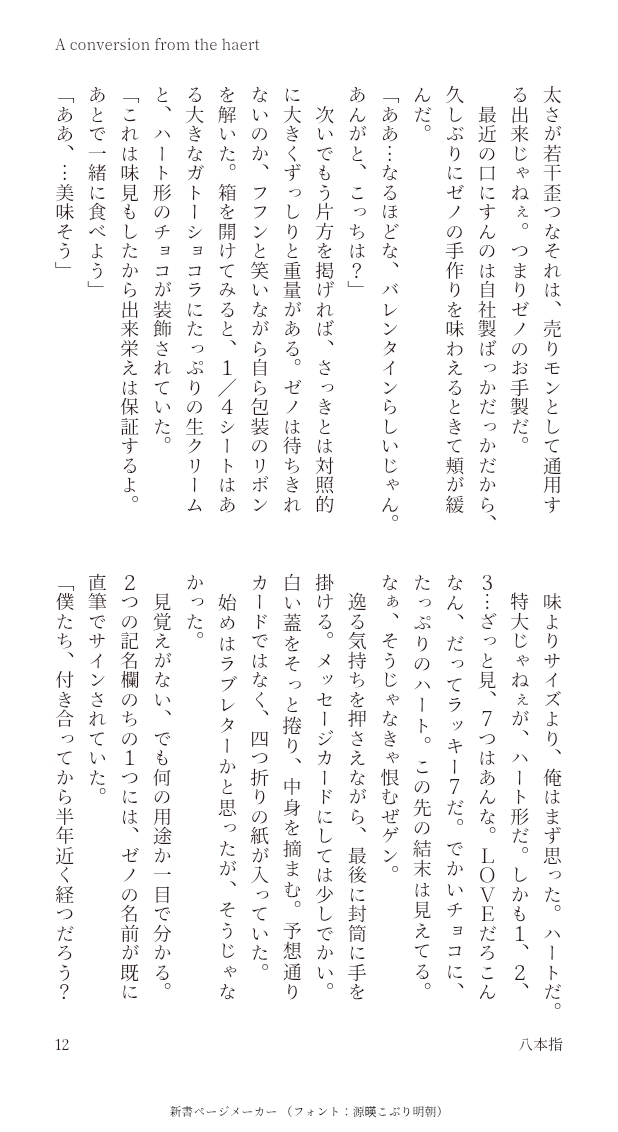 A conversion from the haert
太さが若干歪つなそれは、売りモンとして通用す
る出来じゃねぇ。つまりゼノのお手製だ。
　最近の口にすんのは自社製ばっかだっかだから、
久しぶりにゼノの手作りを味わえるときて頬が緩
んだ。
「ああ…なるほどな、バレンタインらしいじゃん。
あんがと、こっちは？」
　次いでもう片方を掲げれば、さっきとは対照的
に大きくずっしりと重量がある。ゼノは待ちきれ
ないのか、フフンと笑いながら自ら包装のリボン
を解いた。箱を開けてみると、１／４シートはあ
る大きなガトーショコラにたっぷりの生クリーム
と、ハート形のチョコが装飾されていた。
「これは味見もしたから出来栄えは保証するよ。
あとで一緒に食べよう」
「ああ、…美味そう」
　味よりサイズより、俺はまず思った。ハートだ。
　特大じゃねぇが、ハート形だ。しかも１、２、
３…ざっと見、７つはあんな。ＬＯＶＥだろこん
なん、だってラッキー７だ。でかいチョコに、
たっぷりのハート。この先の結末は見えてる。
なぁ、そうじゃなきゃ恨むぜゲン。
　逸る気持ちを押さえながら、最後に封筒に手を
掛ける。メッセージカードにしては少しでかい。
白い蓋をそっと捲り、中身を摘まむ。予想通り
カードではなく、四つ折りの紙が入っていた。
　始めはラブレターかと思ったが、そうじゃな
かった。
　見覚えがない、でも何の用途か一目で分かる。
２つの記名欄のちの１つには、ゼノの名前が既に
直筆でサインされていた。
「僕たち、付き合ってから半年近く経つだろう？
12
八本指
新書ページメーカー（フォント：源暎こぶり明朝）